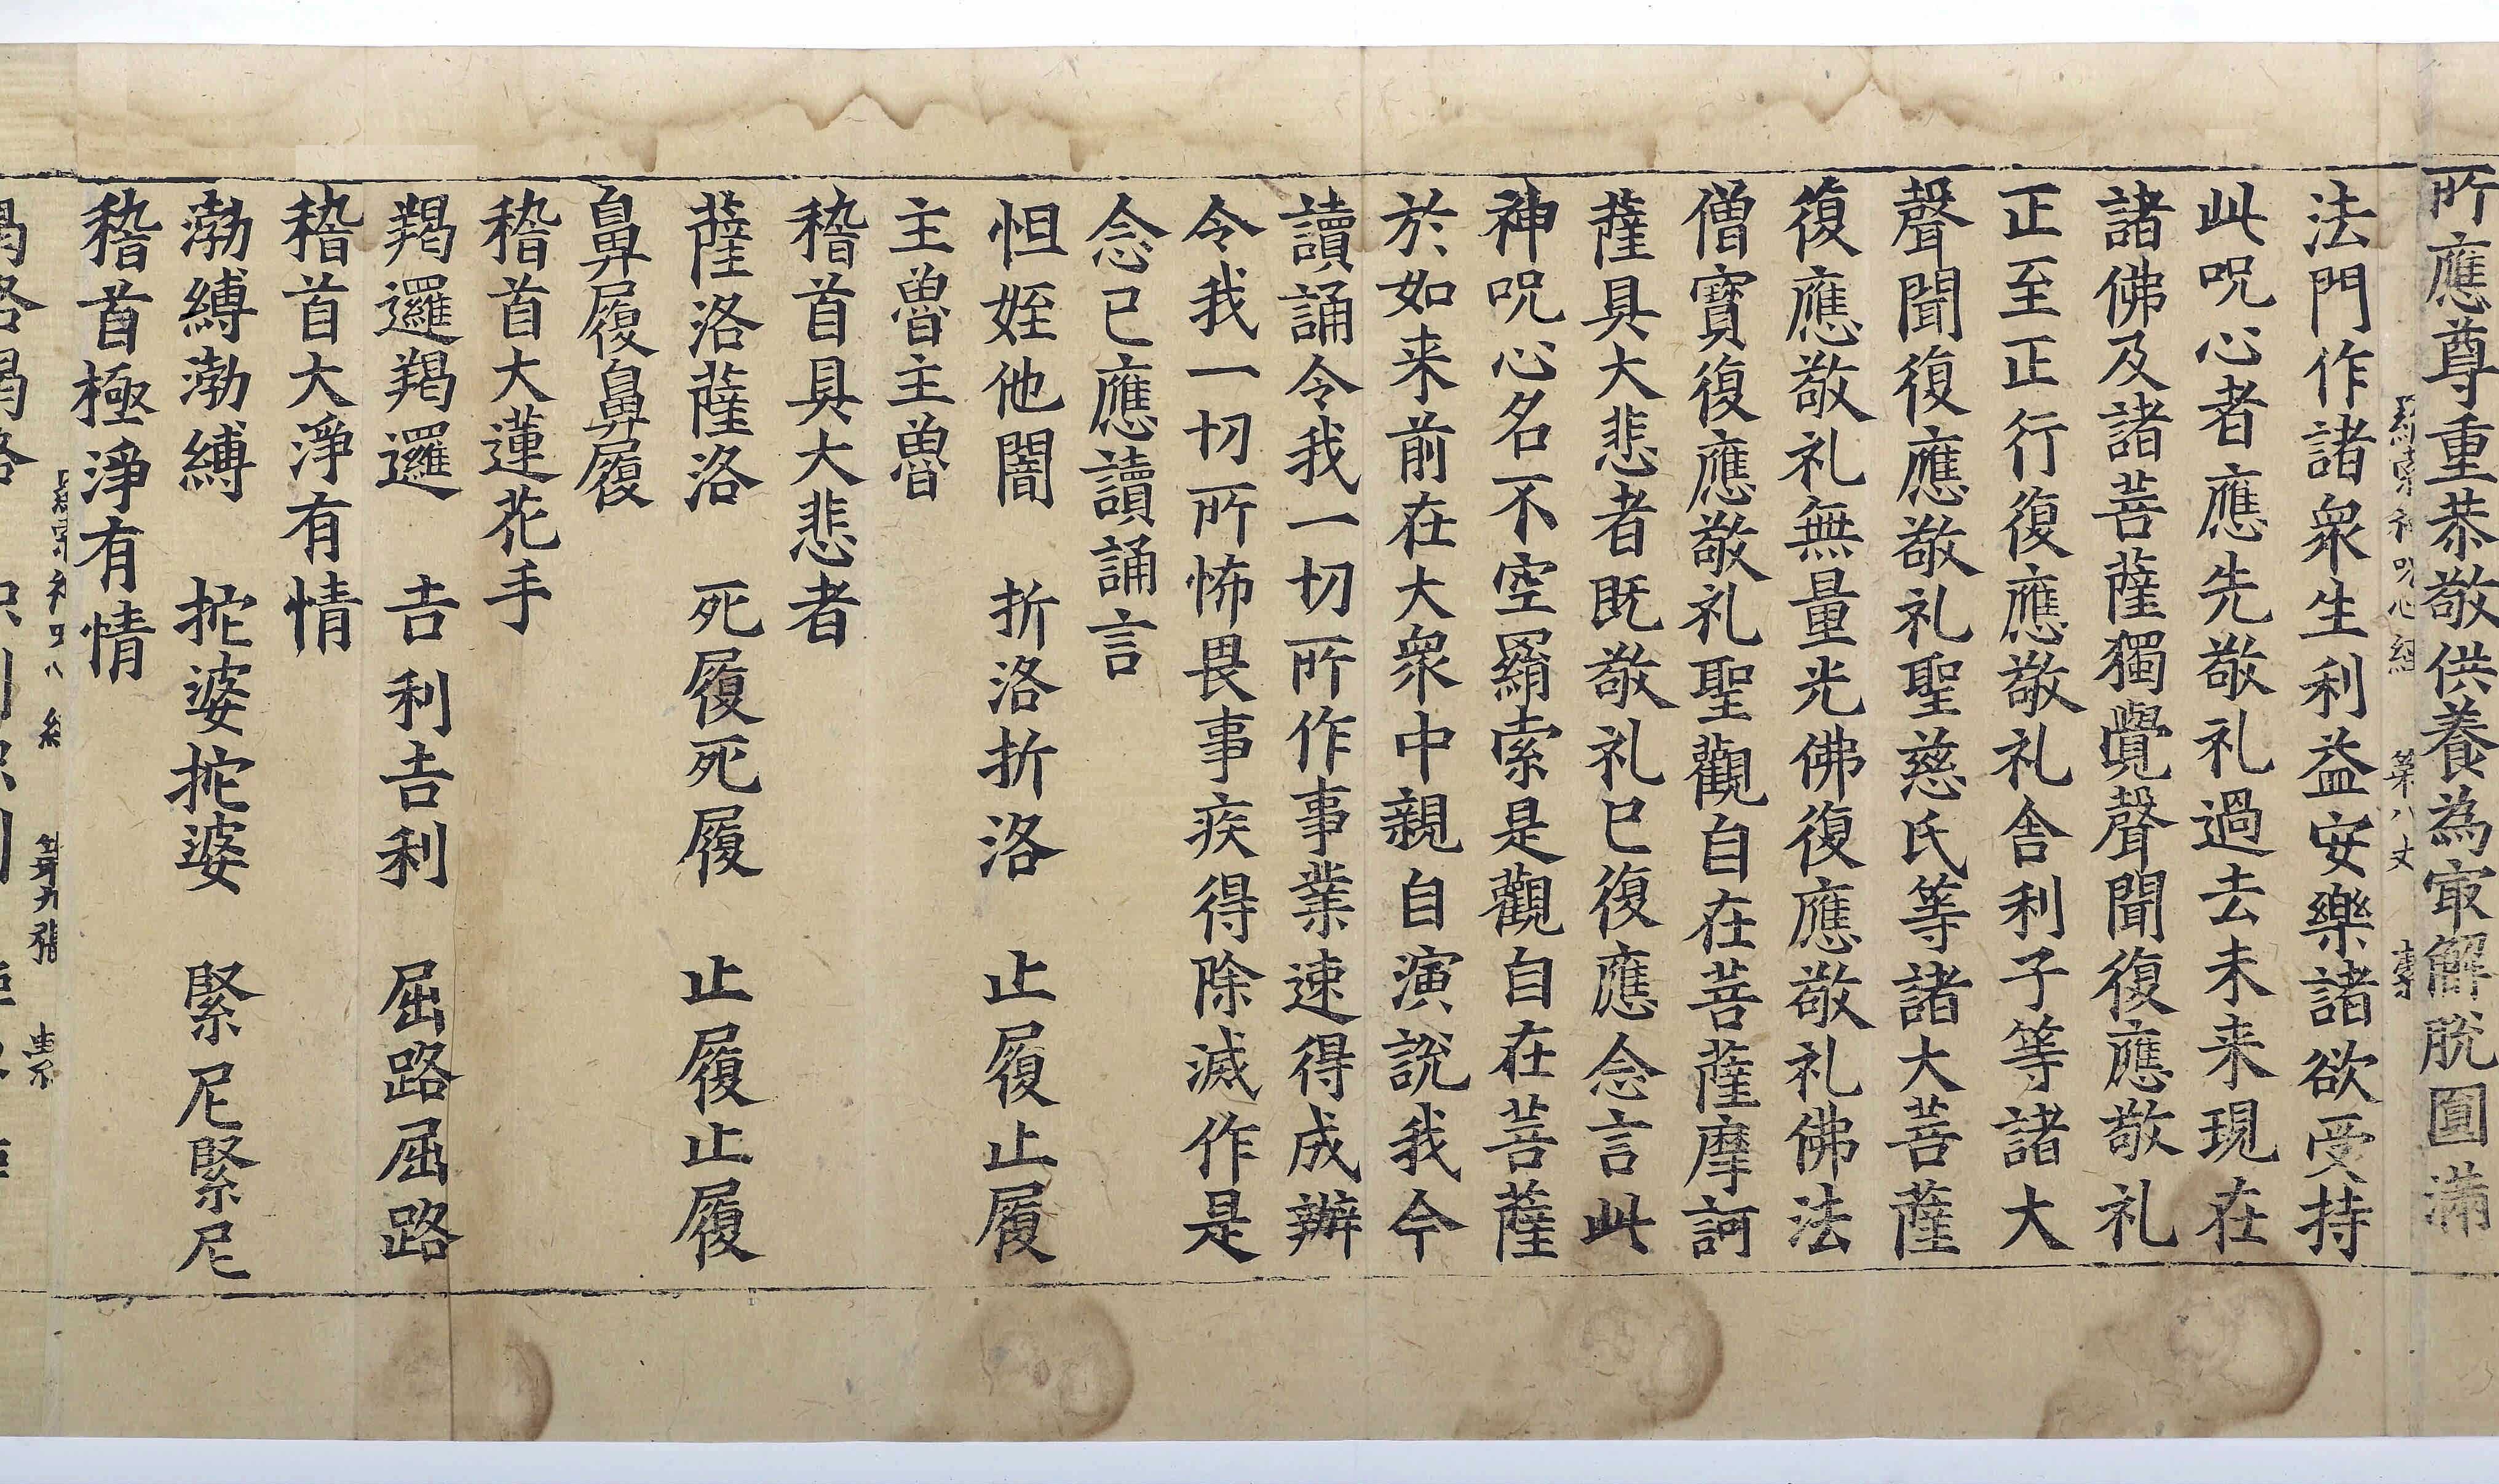 所應尊重恭敬供養為㝡解脫圓滿
羂索神呪心經 第八丈
法門作諸衆生利益安樂諸欲受持
此呪心者應先敬礼過去未来現在
諸佛及諸菩薩獨覺聲聞復應敬礼
正至正行復應敬礼舍利子等諸大
聲聞復應敬礼聖慈氏等諸大菩薩
復應敬礼無量光佛復應敬礼佛法
僧寶復應敬礼聖觀自在菩薩摩訶
薩具大悲者既敬礼已復應念言此
神呪心名不空羂索是觀自在菩薩
於如来前在大衆中親自演說我今
讀誦令我一切所作事業速得成辦
令我一切所怖畏事疾得除滅作是
念已應讀誦言
怛姪他闇 折洛折洛 止履止履
主魯主魯
稽首具大悲者
薩洛薩洛 死履死履 止履止履
鼻履鼻履
稽首大蓮花手
羯邏羯邏 吉利吉利 屈路屈路
稽首大淨有情
渤縛渤縛 挓婆挓婆 緊尼緊尼
稽首極淨有情